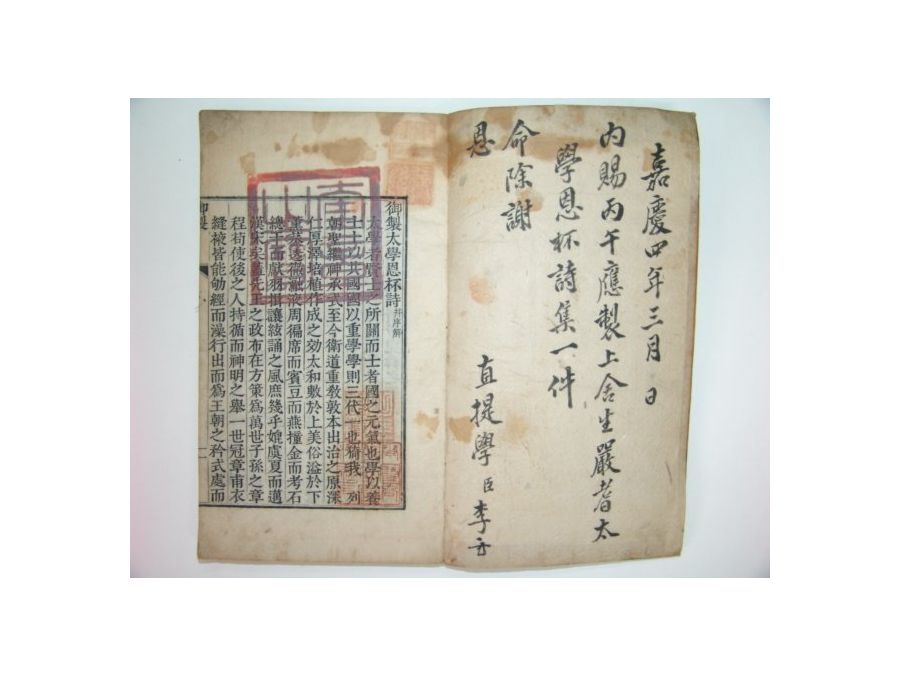 嘉慶四年三月 日
内賜丙午應製上舍生嚴耆太
學恩杯詩集一件
命除謝
恩
直提學臣李
御製太學恩杯詩 并序解
太學者賢士之所關而士者國之元氣也學以養
士士以共國國以重學學則三代一也猗我 列
朝聖繼神承式至今衛道重敎敦本出治之原深
仁厚澤培植作成之効太和敷於上美俗溢於下
薰蒸透徹融液周徧席而賓豆而燕撞金而考石
總干而獻羽揖讓絃誦之風庶幾乎媲虞夏而邁
漢宋矣盖先王之政布在方策爲萬世子孫之章
程苟使後之人持循而神明之擧一世冠章甫衣
縫掖皆能劬經而澡行出而爲王朝之矜式處而
御製